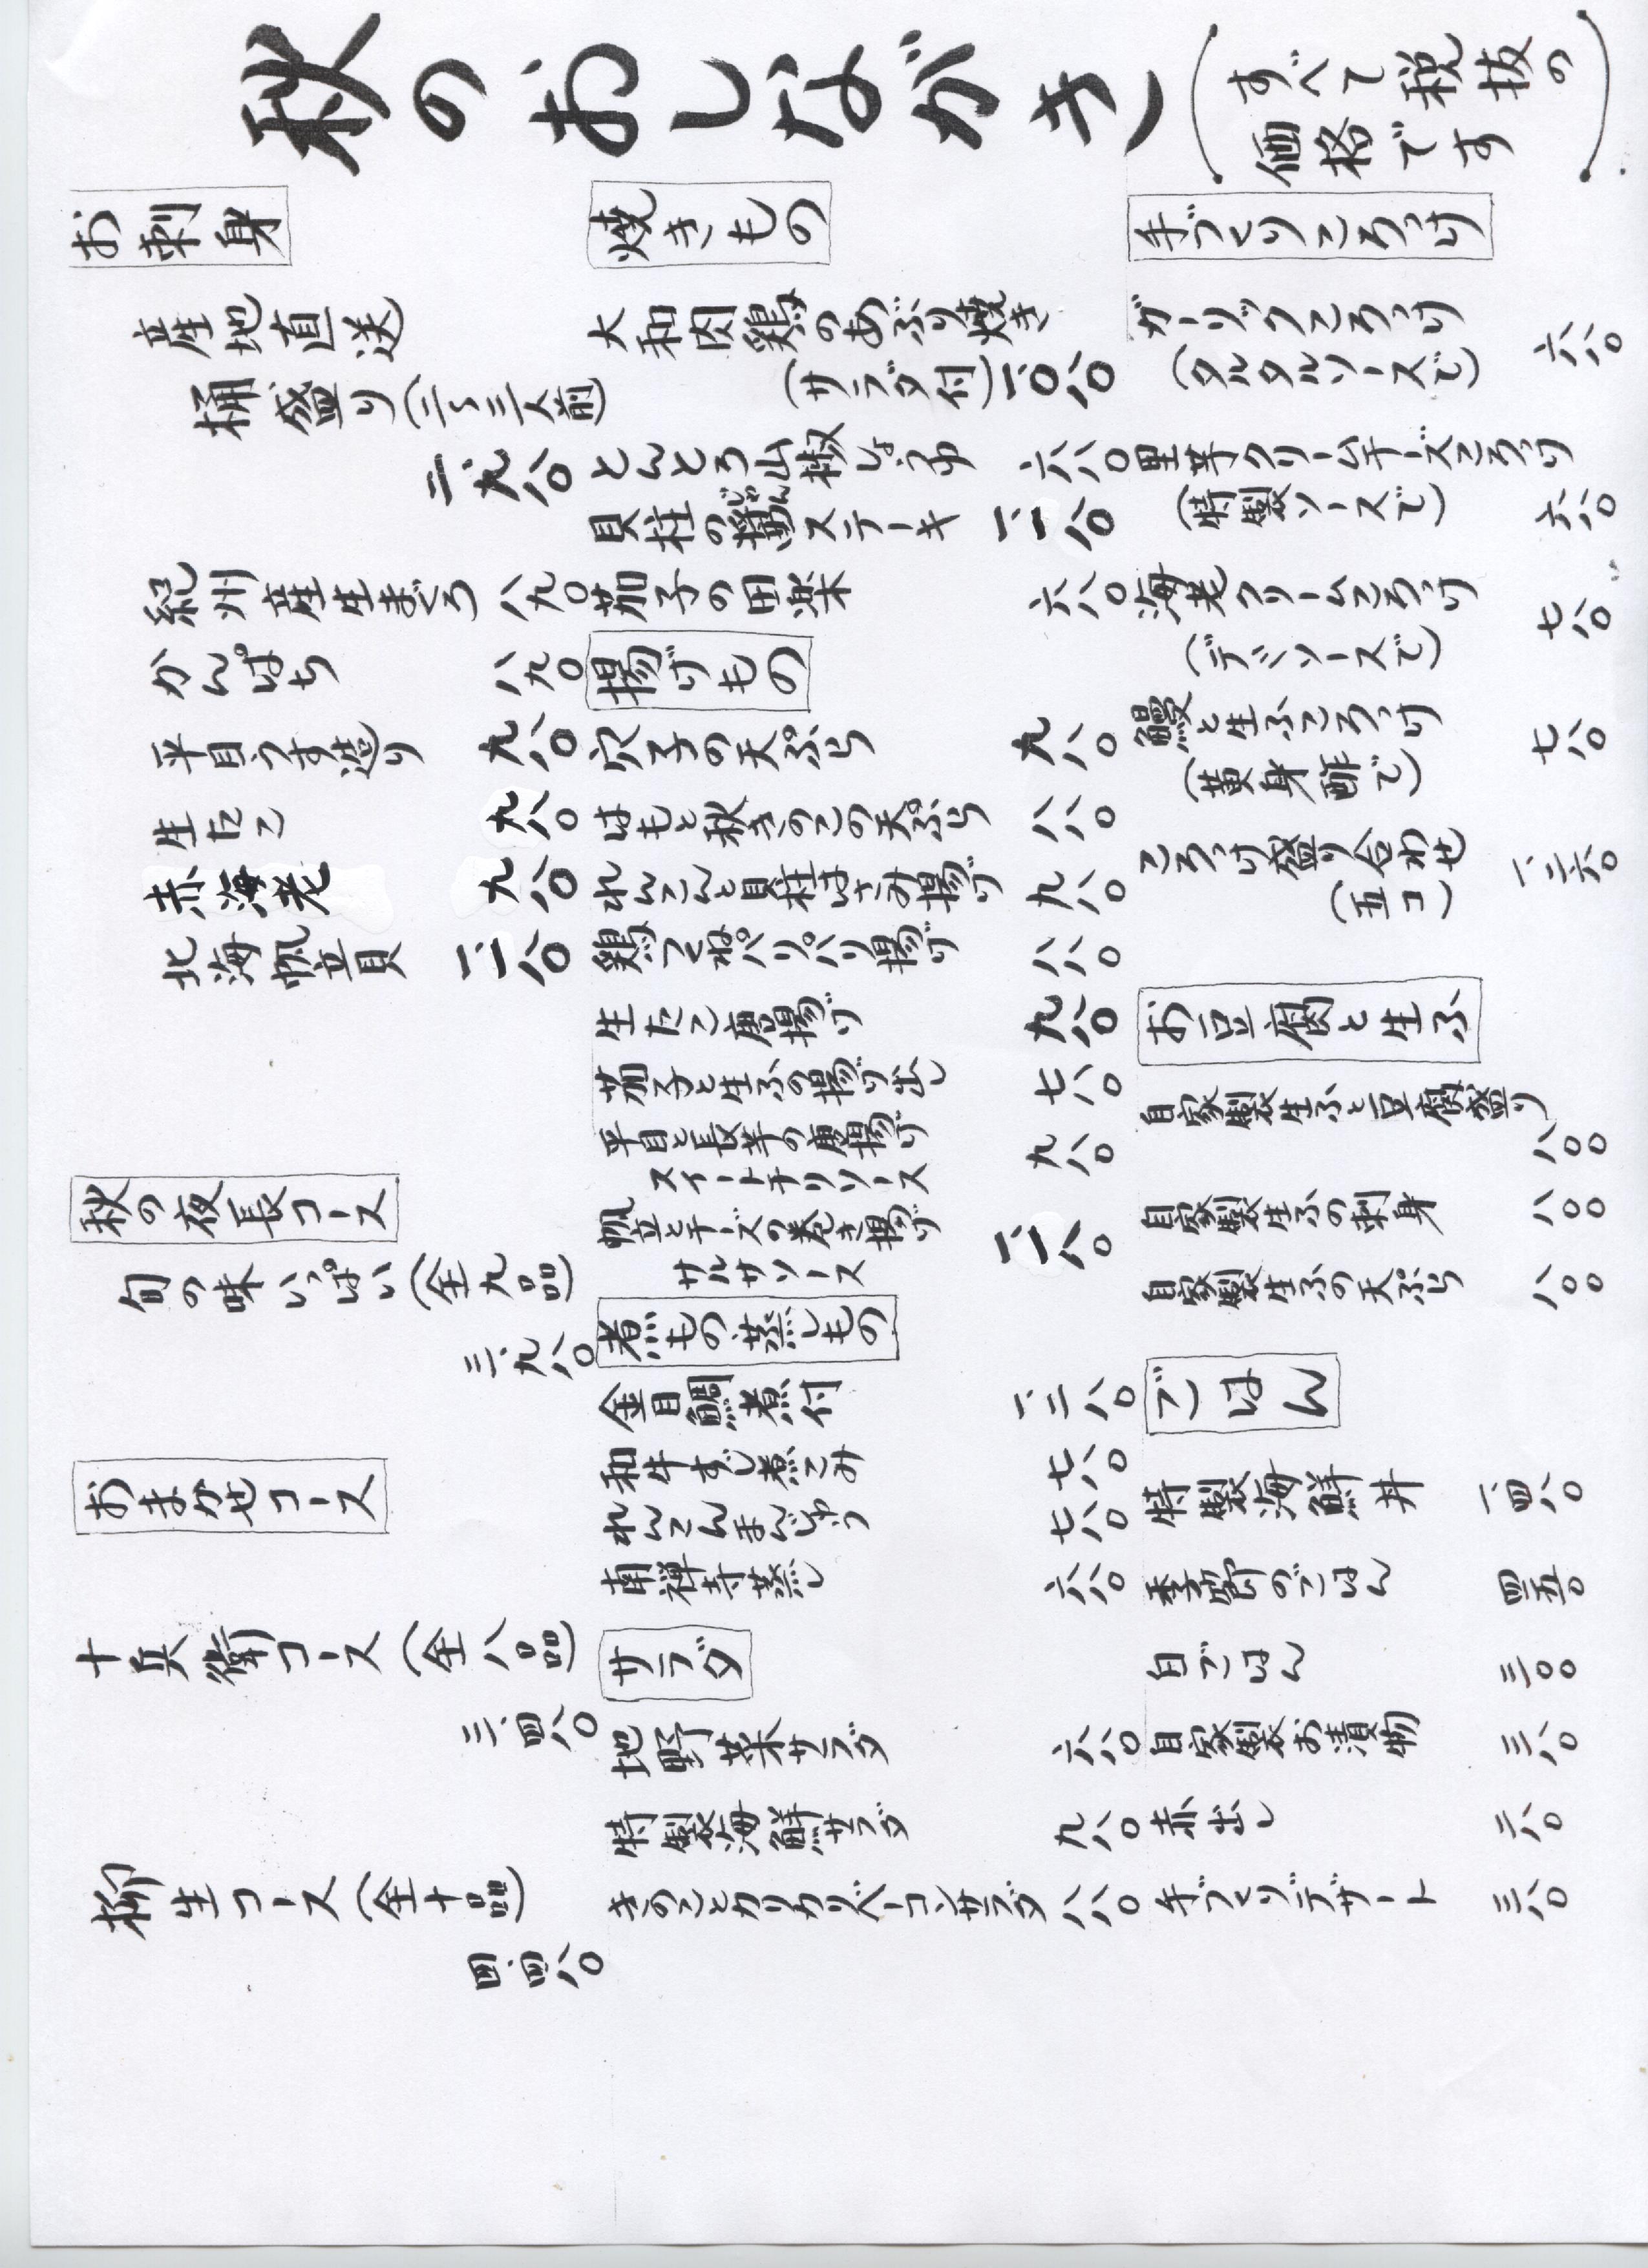 秋のおしながき
(すべて税抜の
価格です)
お刺身
産地直送
桶盛り(二〜三人前)
二、九八〇
紀州産生まぐろ 八九〇
かんぱち 八九〇
平目うす造り 九八〇
生たこ 九八〇
赤海老 九八〇
北海帆立貝 一、一八〇
秋の夜長コース
旬の味いっぱい(全九品)
三、九八〇
おまかせコース
十兵衛コース(全八品)
三、四八〇
柳生コース(全十品)
四、四八〇
焼きもの
大和肉鶏のあぶり焼き
(サラダ付) 一、〇八〇
とんとろ山椒しょうゆ 六八〇
じゃん
貝柱の醤ステーキ 一、一八〇
茄子の田楽 六八〇
揚げもの
穴子の天ぷら 九八〇
はもと秋きのこの天ぷら 八八〇
れんこんと貝柱はさみ揚げ 九八〇
鶏つくねパリパリ揚げ 八八〇
生たこ唐揚げ 九八〇
茄子と生ふの揚げ出し 七八〇
平目と長芋の唐揚げ 九八〇
スイートチリソース
帆立とチーズの巻き揚げ 一、一八〇
サルサソース
煮もの蒸しもの
金目鯛煮付 一、二八〇
和牛すじ煮こみ 七八〇
れんこんまんじゅう 七八〇
南禅寺蒸し 六八〇
サラダ
地野菜サラダ 六八〇
特製海鮮サラダ 九八〇
きのことカリカリベーコンサラダ 八八〇
手づくりころっけ
ガーリックころっけ 六八〇
(タルタルソースで)
里芋クリームチーズころっけ
(特製ソースで) 六八〇
海老クリームころっけ 七八〇
(デミソースで)
鰻と生ふころっけ 七八〇
(黄身酢で)
ころっけ盛り合わせ 一、三六〇
(五コ)
お豆腐と生ふ
自家製生ふと豆腐盛り
八〇〇
自家製生ふの刺身 八〇〇
自家製生ふの天ぷら 八〇〇
ごはん
特製海鮮丼 一、四八〇
季節のごはん 四五〇
白ごはん 三〇〇
自家製お漬物 三八〇
赤出し 二八〇
手づくりデザート 三八〇